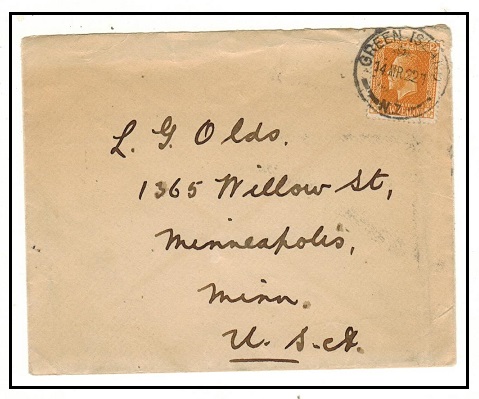 GREEN ISLAND
N.Z.
L. G. Olds.
1365 Willow St,
Minneapolis,
Minn.
U. S. A.